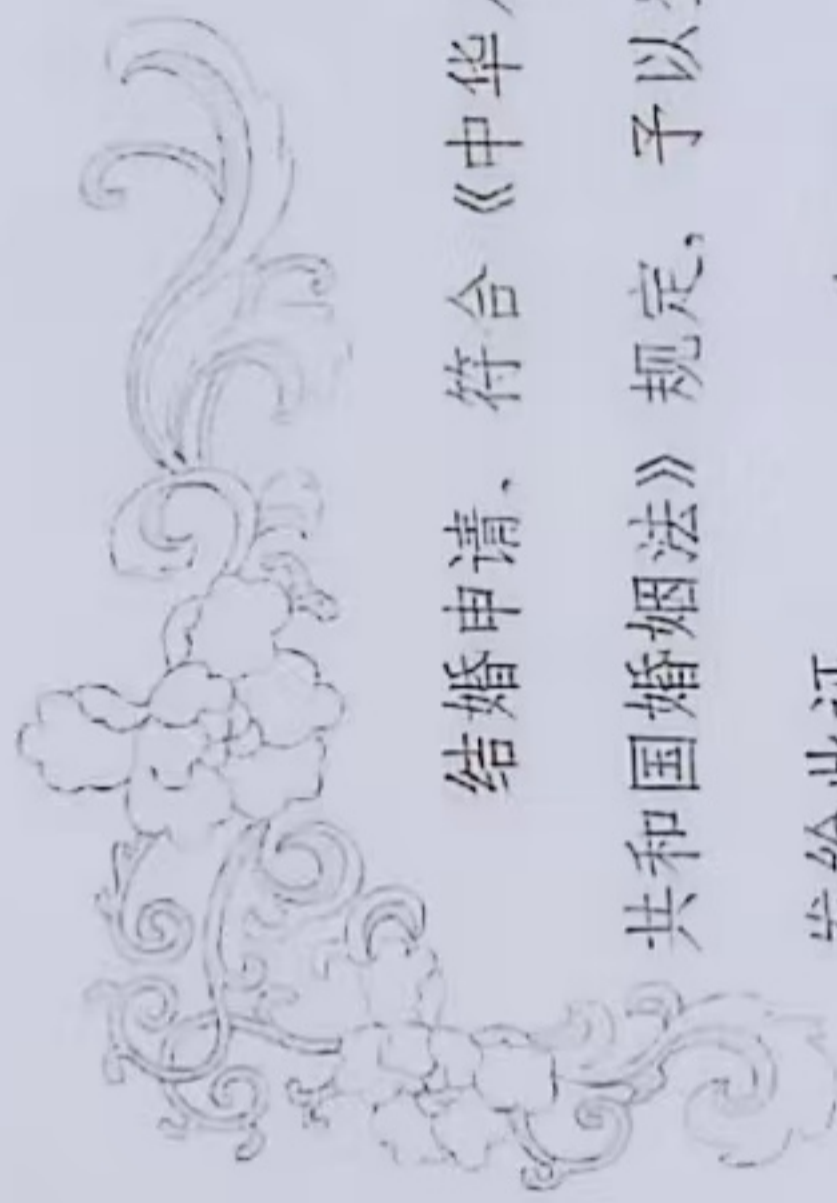 结婚申请、符合《中华
共和国婚姻法》规定,予以
发给此证